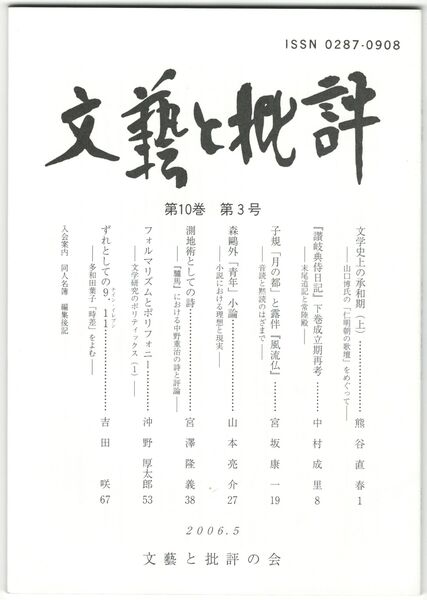 ISSN 0287-0908
文藝と批評
第10巻 第3号
文学史上の承和期（上）…………熊谷直春 1
――山口博氏の「仁明朝の歌壇」をめぐって――
『讃岐典侍日記』下巻成立期再考…………中村成里 8
――末尾追記と常陸殿――
子規「月の都」と露伴『風流仏』…………宮坂康一 19
――音読と黙読のはざまで――
森鷗外「青年」小論…………山本亮介 27
――小説における理想と現実――
測地術としての詩…………宮澤隆義 38
――『驢馬』における中野重治の詩と評論――
フォルマリズムとポリフォニー…………沖野厚太郎 53
――文学研究のポリティックス（1）――
ずれとしての9．11…………吉田咲 67
ナイン・イレブン
――多和田葉子「時差」をよむ――
入会案内 同人名簿 編集後記
2006.5
文藝と批評の会